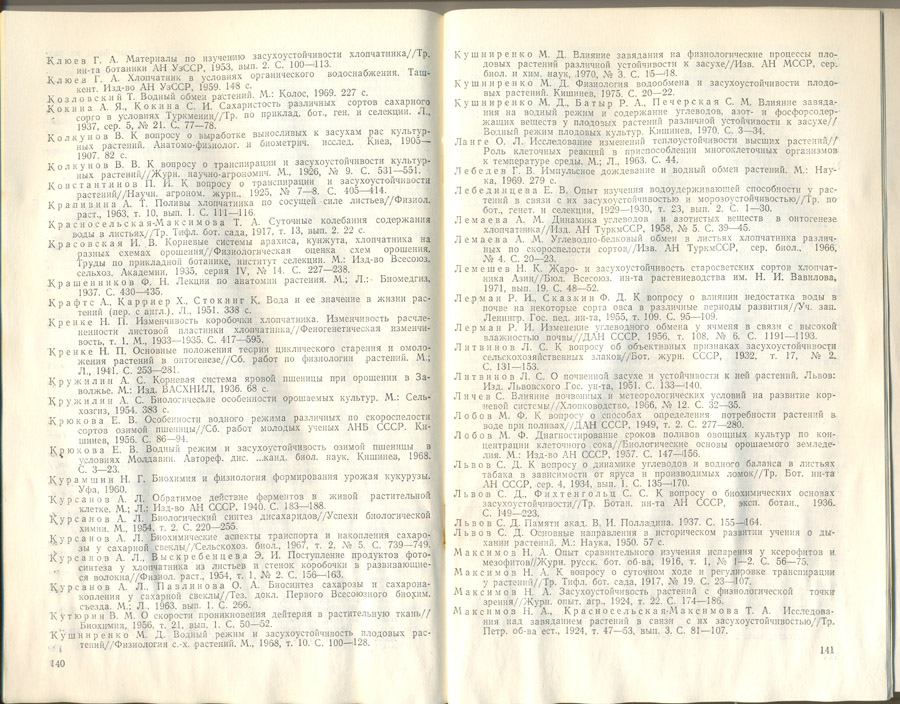 Клюев Г. А. Материалы по изучению засухоустойчивости хлопчатника//Тр.
ин-та ботаники АН УзССР, 1953, вып. 2. С. 100—113.
Клюев Г. А. Хлопчатник в условиях органического водоснабжения. Таш-
кент. Изд-во АН УзССР, 1959. 148 с.
Козловский Т. Водный обмен растений. М.: Колос, 1969. 227 с.
Кокина А. Я., Кокина С. И. Сахаристость различных сортов сахарного
сорго в условиях Туркмении//Тр. по приклад. бот., ген. и селекции. Л.,
1937, сер. 5, № 21. С. 77—78.
Колкунов В. К вопросу о выработке выносливых к засухам рас культур-
ных растений. Анатомо-физиолог. и биометрич. исслед. Киев, 1905—
1907. 82 с.
Колкунов В. В. К вопросу о транспирации и засухоустойчивости культур-
ных растений//Журн. научно-агрономич. М., 1926, № 9. С. 531—551.
Константинов П. И. К вопросу о транспирации и засухоустойчивости
растений//Научн. агроном. журн., 1925, № 7—8. С. 405—414.
Крапивина А. Т. Поливы хлопчатника по сосущей силе листьев//Физиол.
раст., 1963, т. 10, вып. 1. С. 111—116.
Красносельская-Максимова Т. А. Суточные колебания содержания
воды в листьях//Тр. Тифл. бот. сада, 1917, т. 13, вып. 2. 22 с.
Красовская И. В. Корневые системы арахиса, кунжута, хлопчатника на
разных схемах орошения//Физиологическая оценка схем орошения.
Труды по прикладной ботанике, институт селекции. М.: Изд-во Всесоюз.
сельхоз. Академии, 1935, серия IV, № 14. С. 227—238.
Крашенников Ф. Н. Лекции по анатомии растений. М.; Л.: Биомедгиз,
1937. С. 430—435.
Крафтс А., Карриер Х., Стокинг К. Вода и ее значение в жизни рас-
тений (пер. с англ.). Л., 1951. 338 с.
Кренке Н. П. Изменчивость коробочки хлопчатника. Изменчивость расчле-
ненности листовой пластинки хлопчатника//Феногенетическая изменчи-
вость, т. 1, М., 1933—1935. С. 417—595.
Кренке Н. П. Основные положения теории циклического старения и омоло-
жения растений в онтогенезе//Сб. работ по физиологии растений. М.;
Л., 1941. С. 253—281.
Кружилин А. С. Корневая система яровой пшеницы при орошении в За-
волжье. М.: Изд. ВАСХНИЛ, 1936. 68 с.
Кружилин А. С. Биологические особенности орошаемых культур. М.: Сель-
хозгиз, 1954. 383 с.
Крюкова Е. В. Особенности водного режима различных по скороспелости
сортов озимой пшеницы//Сб. работ молодых ученых АНБ СССР. Ки-
шинев, 1956. С. 86—94.
Крюкова Е. В. Водный режим и засухоустойчивость озимой пшеницы в
условиях Молдавии. Автореф. дис. ...канд. биол. наук, Кишинев, 1968.
С. 3—23.
Курамшин Н. Г. Биохимия и физиология формирования урожая кукурузы.
Уфа, 1960.
Курсанов А. Л. Обратимое действие ферментов в живой растительной
клетке. М.; Л.: Изд-во АН СССР, 1940. С. 183—188.
Курсанов А. Л. Биологический синтез дисахаридов//Успехи биологической
химии. М., 1954, т. 2. С. 220—255.
Курсанов А. Л. Биохимические аспекты транспорта и накопления сахаро-
зы у сахарной свеклы//Сельскохоз. биол., 1967, т. 2, № 5. С. 739—749.
Курсанов А. Л., Выскребенцева Э. И. Поступление продуктов фото-
синтеза у хлопчатника из листьев и стенок коробочки в развивающие-
ся волокна//Физиол. раст., 1954, т. 1, № 2. С. 156—163.
Курсанов А. Л., Павлинова О. А. Биосинтез сахарозы и сахарона-
копления у сахарной свеклы//Тез. докл. Первого Всесоюзного биохим.
съезда. М.; Л., 1963, вып. 1. С. 266.
Кутюрин В. М. О скорости проникновения дейтерия в растительную ткань//
Биохимия, 1956. т. 21, вып. 1. С. 50—52.
Кушниренко М. Д. Водный режим и засухоустойчивость плодовых рас-
тений//Физиология с.-х. растений. М., 1968, т. 10. С. 100—128.
140
Кушниренко М. Д. Влияние завядания на физиологические процессы пло-
довых растений различной устойчивости к засухе//Изв. АН МССР, сер.
биол. и хим. наук, 1970, № 3. С. 15—18.
Кушниренко М. Д. Физиология водообмена и засухоустойчивости плодо-
вых растений. Кишинев, 1975. С. 20—22.
Кушниренко М. Д., Батыр Р. А., Печерская С. М. Влияние завяда-
ния на водный режим и содержание углеводов, азот- и фосфорсодер-
жащих веществ у плодовых растений различной устойчивости к засухе//
Водный режим плодовых культур. Кишинев, 1970. С. 3—34.
Ланге О. Л. Исследование изменений теплоустойчивости высших растений//
Роль клеточных реакций в приспособлении многоклеточных организмов
к температуре среды. М.; Л., 1963. С. 44.
Лебедев Г. В. Импульсное дождевание и водный обмен растений. М.: Нау-
ка, 1969. 279 с.
Лебединцева Е. В. Опыт изучения водоудерживающей способности у рас-
тений в связи с их засухоустойчивостью и морозоустойчивостью//Тр. по
бот., генет. и селекции, 1929—1930, т. 23, вып. 2. С. 1—30.
Лемаева А. М. Динамика углеводов и азотистых веществ в онтогенезе
хлопчатника//Изд. АН ТуркмССР, 1958, № 5. С. 39—45.
Лемаева А. М. Углеводно-белковый обмен в листьях хлопчатника различ-
ных по скороспелости сортов//Изв. АН ТуркмССР, сер. биол., 1966,
№ 4. С. 20—23.
Лемешев Н. К. Жаро- и засухоустойчивость старосветских сортов хлопчат-
ника Азии//Бюл. Всесоюз. ин-та растениеводства им. Н. И. Вавилова,
1971, вып. 19. С. 48—52.
Лерман Р. И., Сказкин Ф. Д. К вопросу о влиянии недостатка воды в
почве на некоторые сорта овса в различные периоды развития//Уч. зап.
Ленингр. Гос. пед. ин-та, 1955, т. 109. С. 95—109.
Лерман Р. И. Изменение углеводного обмена у ячменя в связи с высокой
влажностью почвы//ДАН СССР, 1956, т. 108, № 6. С. 1191—1193.
Литвинов Л. С. К вопросу об объективных признаках засухоустойчивости
сельскохозяйственных злаков//Бот. журн. СССР, 1932, т. 17, № 2.
С. 131—153.
Литвинов Л. С. О почвенной засухе и устойчивости к ней растений. Львов:
Изд. Львовского Гос. ун-та, 1951. С. 133—140.
Личев С. Влияние почвенных и метеорологических условий на развитие кор-
невой системы//Хлопководство, 1966, № 12. С. 32—35.
Лобов М. Ф. К вопросу о способах определения потребности растений в
воде при поливах//ДАН СССР, 1949, т. 2. С. 277—280.
Лобов М. Ф. Диагностирование сроков поливов овощных культур по кон-
центрации клеточного сока//Биологические основы орошаемого земледе-
лия. М.: Изд-во АН СССР, 1957. С. 147—156.
Львов С. Д. К вопросу о динамике углеводов и водного баланса в листьях
табака в зависимости от яруса и производимых ломок//Тр. Бот. ин-та
АН СССР, сер. 4, 1934, вып. 1. С. 135—170.
Львов С. Д., Фихтенгольц С. С. К вопросу о биохимических основах
засухоустойчивости//Тр. Ботан. ин-та АН СССР, эксп. ботан., 1936.
С. 149—223.
Львов С. Д. Памяти акад. В. И. Полладина. 1937. С. 155—164.
Львов С. Д. Основные направления в историческом развитии учения о ды-
хании растений. М.: Наука, 1950. 57 с.
Максимов Н. А. Опыт сравнительного изучения испарения у ксерофитов и
мезофитов//Журн. русск. бот. об-ва, 1916, т. 1, № 1—2. С. 56—75.
Максимов Н. А. К вопросу о суточном ходе и регулировке транспирации
у растений//Тр. Тифл. бот. сада, 1917, № 19. С. 23—107.
Максимов Н. А. Засухоустойчивость растений с физиологической точки
зрения//Журн. опыт. агр., 1924, т. 22. С. 174—186.
Максимов Н. А., Красносельская-Максимова Т. А. Исследова-
ния над завяданием растений в связи с их засухоустойчивостью//Тр.
Петр. об-ва ест., 1924, т. 47—53, вып. 3. С. 81—107.
141